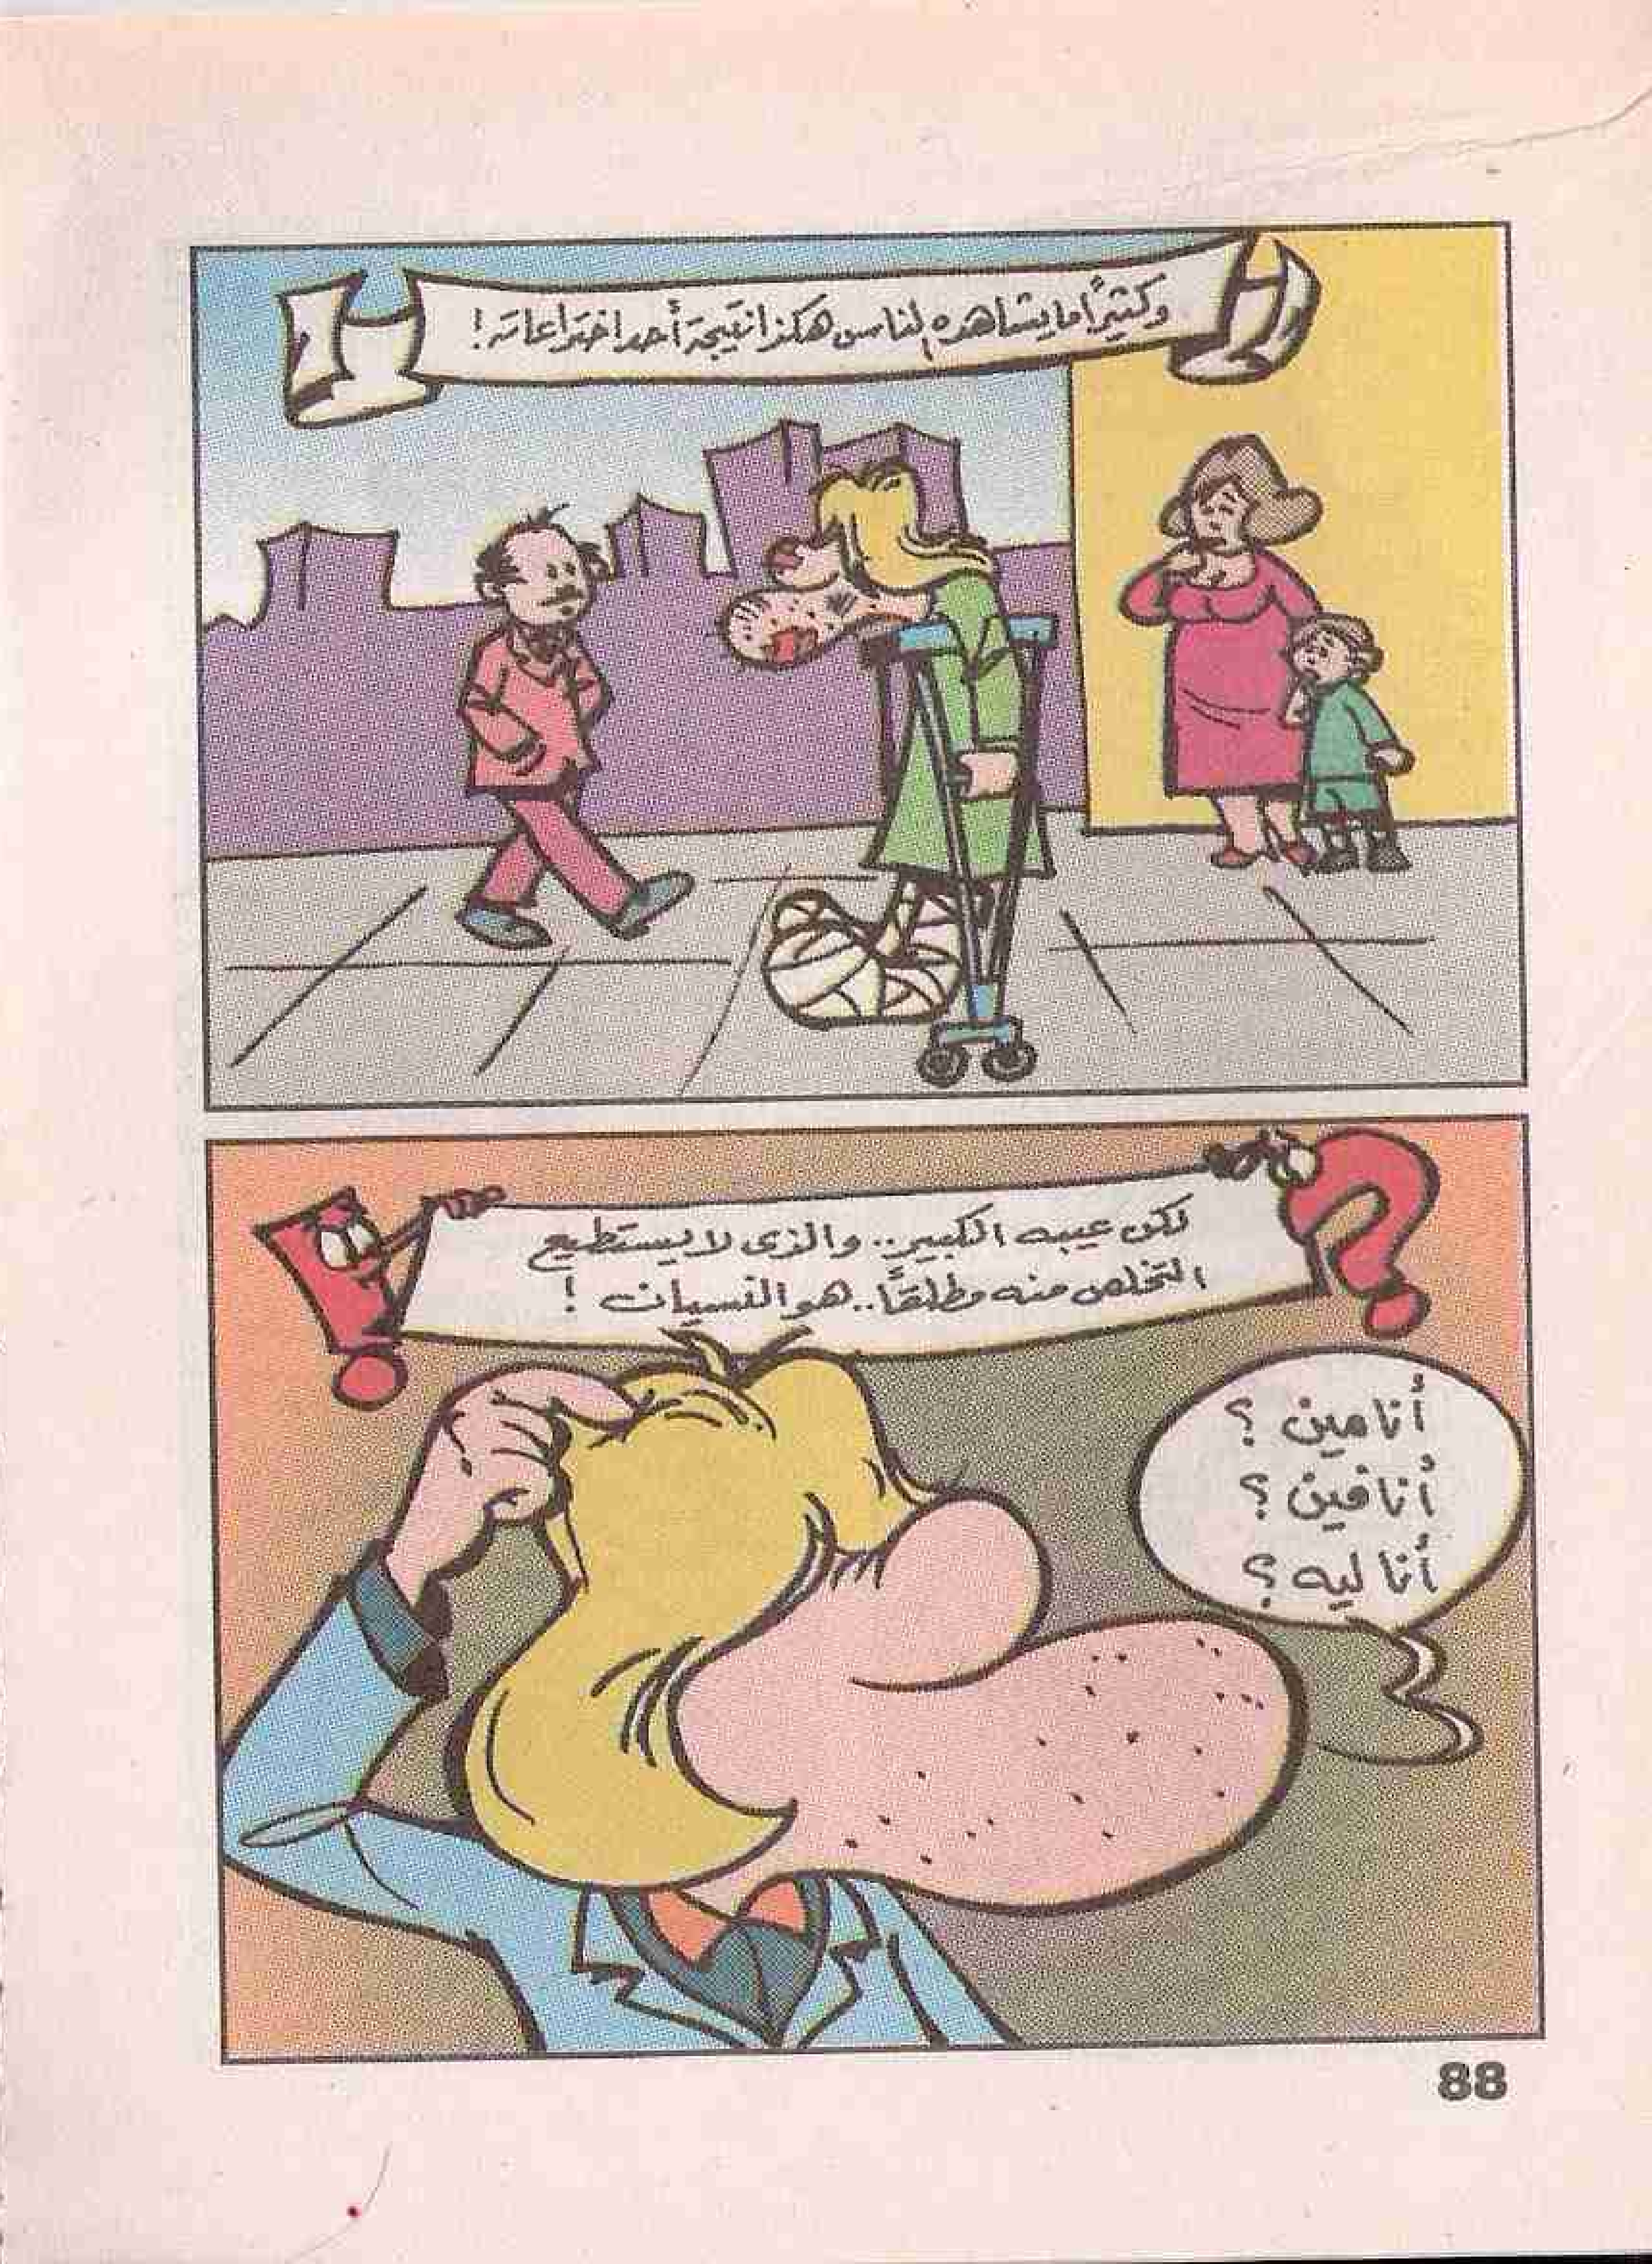 وكثيرًا ما يشاهده الناس هكذا نتيجة أحد اختراعاته!
لكن عيبه الكبير.. والذى لا يستطيع
التخلص منه مطلقًا.. هو النسيان !
أنا مين ؟
أنا فين ؟
أنا ليه ؟
88